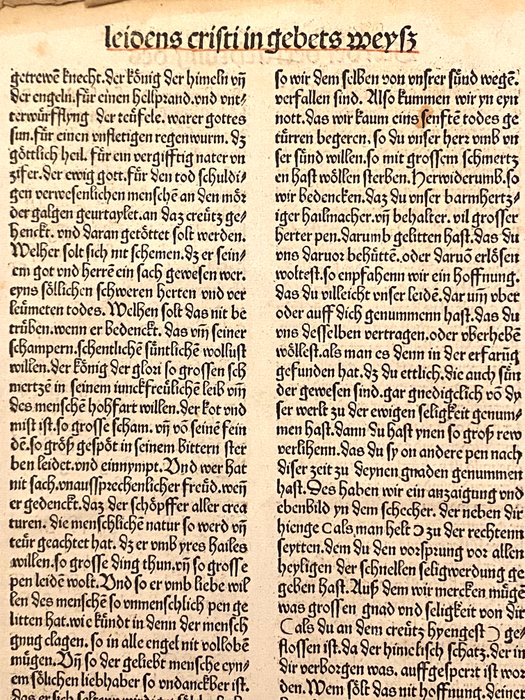 leidens cristi in gebets weysz
getrewē knecht. der kōnig der himeln vn̄
der engeln. für einen hellprand. vnd vnt⸗
terwürfflyng der teüfele. warer gottes
sun. für einen vnfletigen regenwurm. dz
göttlich heil. für em vergifftig nater vn
zifer. der ewig gott. für den tod schuldi⸗
gen verwesenlichen menschē an den mör
der galgen geurtaylet. an daz creütz ge⸗
henckt. vnd daran getöttet solt werden.
Welher solt sich nit schemen. dz er sein⸗
em got vnd herrē ein sach gewesen wer.
eyns söllichen schweren herten vnd ver
leümeten todes. Welhen solt das nit be
trüben. wenn er bedenckt. das vm̄ seiner
schampern. schentlichē süntlichē wollust
willen. der könig der glori so grossen sch
mertzē in seinem iunckfreülichē leib vm̄
des menschē hohfart willen. der kot vnd
mist ist. so grosse scham. vn̄ vō seinē fein
dē. so größ gespöt in seinem bittern ster
ben leidet. vnd einnympt. Vnd wer hat
nit sach. vnaussprechenlicher freüd. weñ
er gedenckt. daz der schöpffer aller crea
turen. die menschliche natur so werd vn̄
teür geachtet hat. dz er vmb yres hailes
willen. so grosse ding thun. vn̄ so grosse
pen leidē wolt. Vnd so er vmb liebe wil
len des menschē so vnmenschlich pen ge
litten hat. wie kündt in denn der mensch
gnug clagen. so in alle engel nit vollobē
mügen. Vn̄ so der geliebt mensche eyn⸗
em sölichen liebhaber so vndanckber ist.
so wir dem selben von vnsrer sünd wegē.
verfallen sind. Also kummen wir yn eyn
nott. das wir kaum eins senftē todes ge
türren begeren. so du vnser herr vmb vn
ser sünd willen. so mit grossem schmertz
en hast wöllen sterben. Herwiderumb. so
wir bedencken. daz du vnser barmhertz⸗
iger hailmacher. vn̄ behalter. vil grosser
herter pen. darumb gelitten hast. das du
vns daruor behüttē. oder daruō erlösen
woltest. so enpfahenn wir ein hoffnung.
das du villeicht vnser leidē. dar um̄ vber
oder auff dich genummenn hast. das du
vns desselben vertragen. oder vberhebē
wöllest. als man es denn in der erfarūg
gefunden hat. dz du ettlich. die auch sün
der gewesen sind. gar gnedigelich vō dy
ser werlt zu der ewigen seligkeit genum⸗
men hast. dann du hast ynen so groß rew
verlihenn. das du sy on andere pen nach
diser zeit zu deynen gnaden genummen
hast. Des haben wir ein anzaigung vnd
ebenbild yn dem schecher. der neben dir
hienge (als man helt) zu der rechtenn
seytten. dem du den vorsprung vor allen
heyligen der schnellen seligwerdung ge
geben hast. Auß dem wir mercken mügē
was grossen gnad vnd seligkeit von dir
(als du an dem creütz hyengest) ge
flossen ist. da der himelisch schatz. der in
dir verborgen was. auffgesperrt ist wor
den. Wem sölt das nit hoffnung. deiner